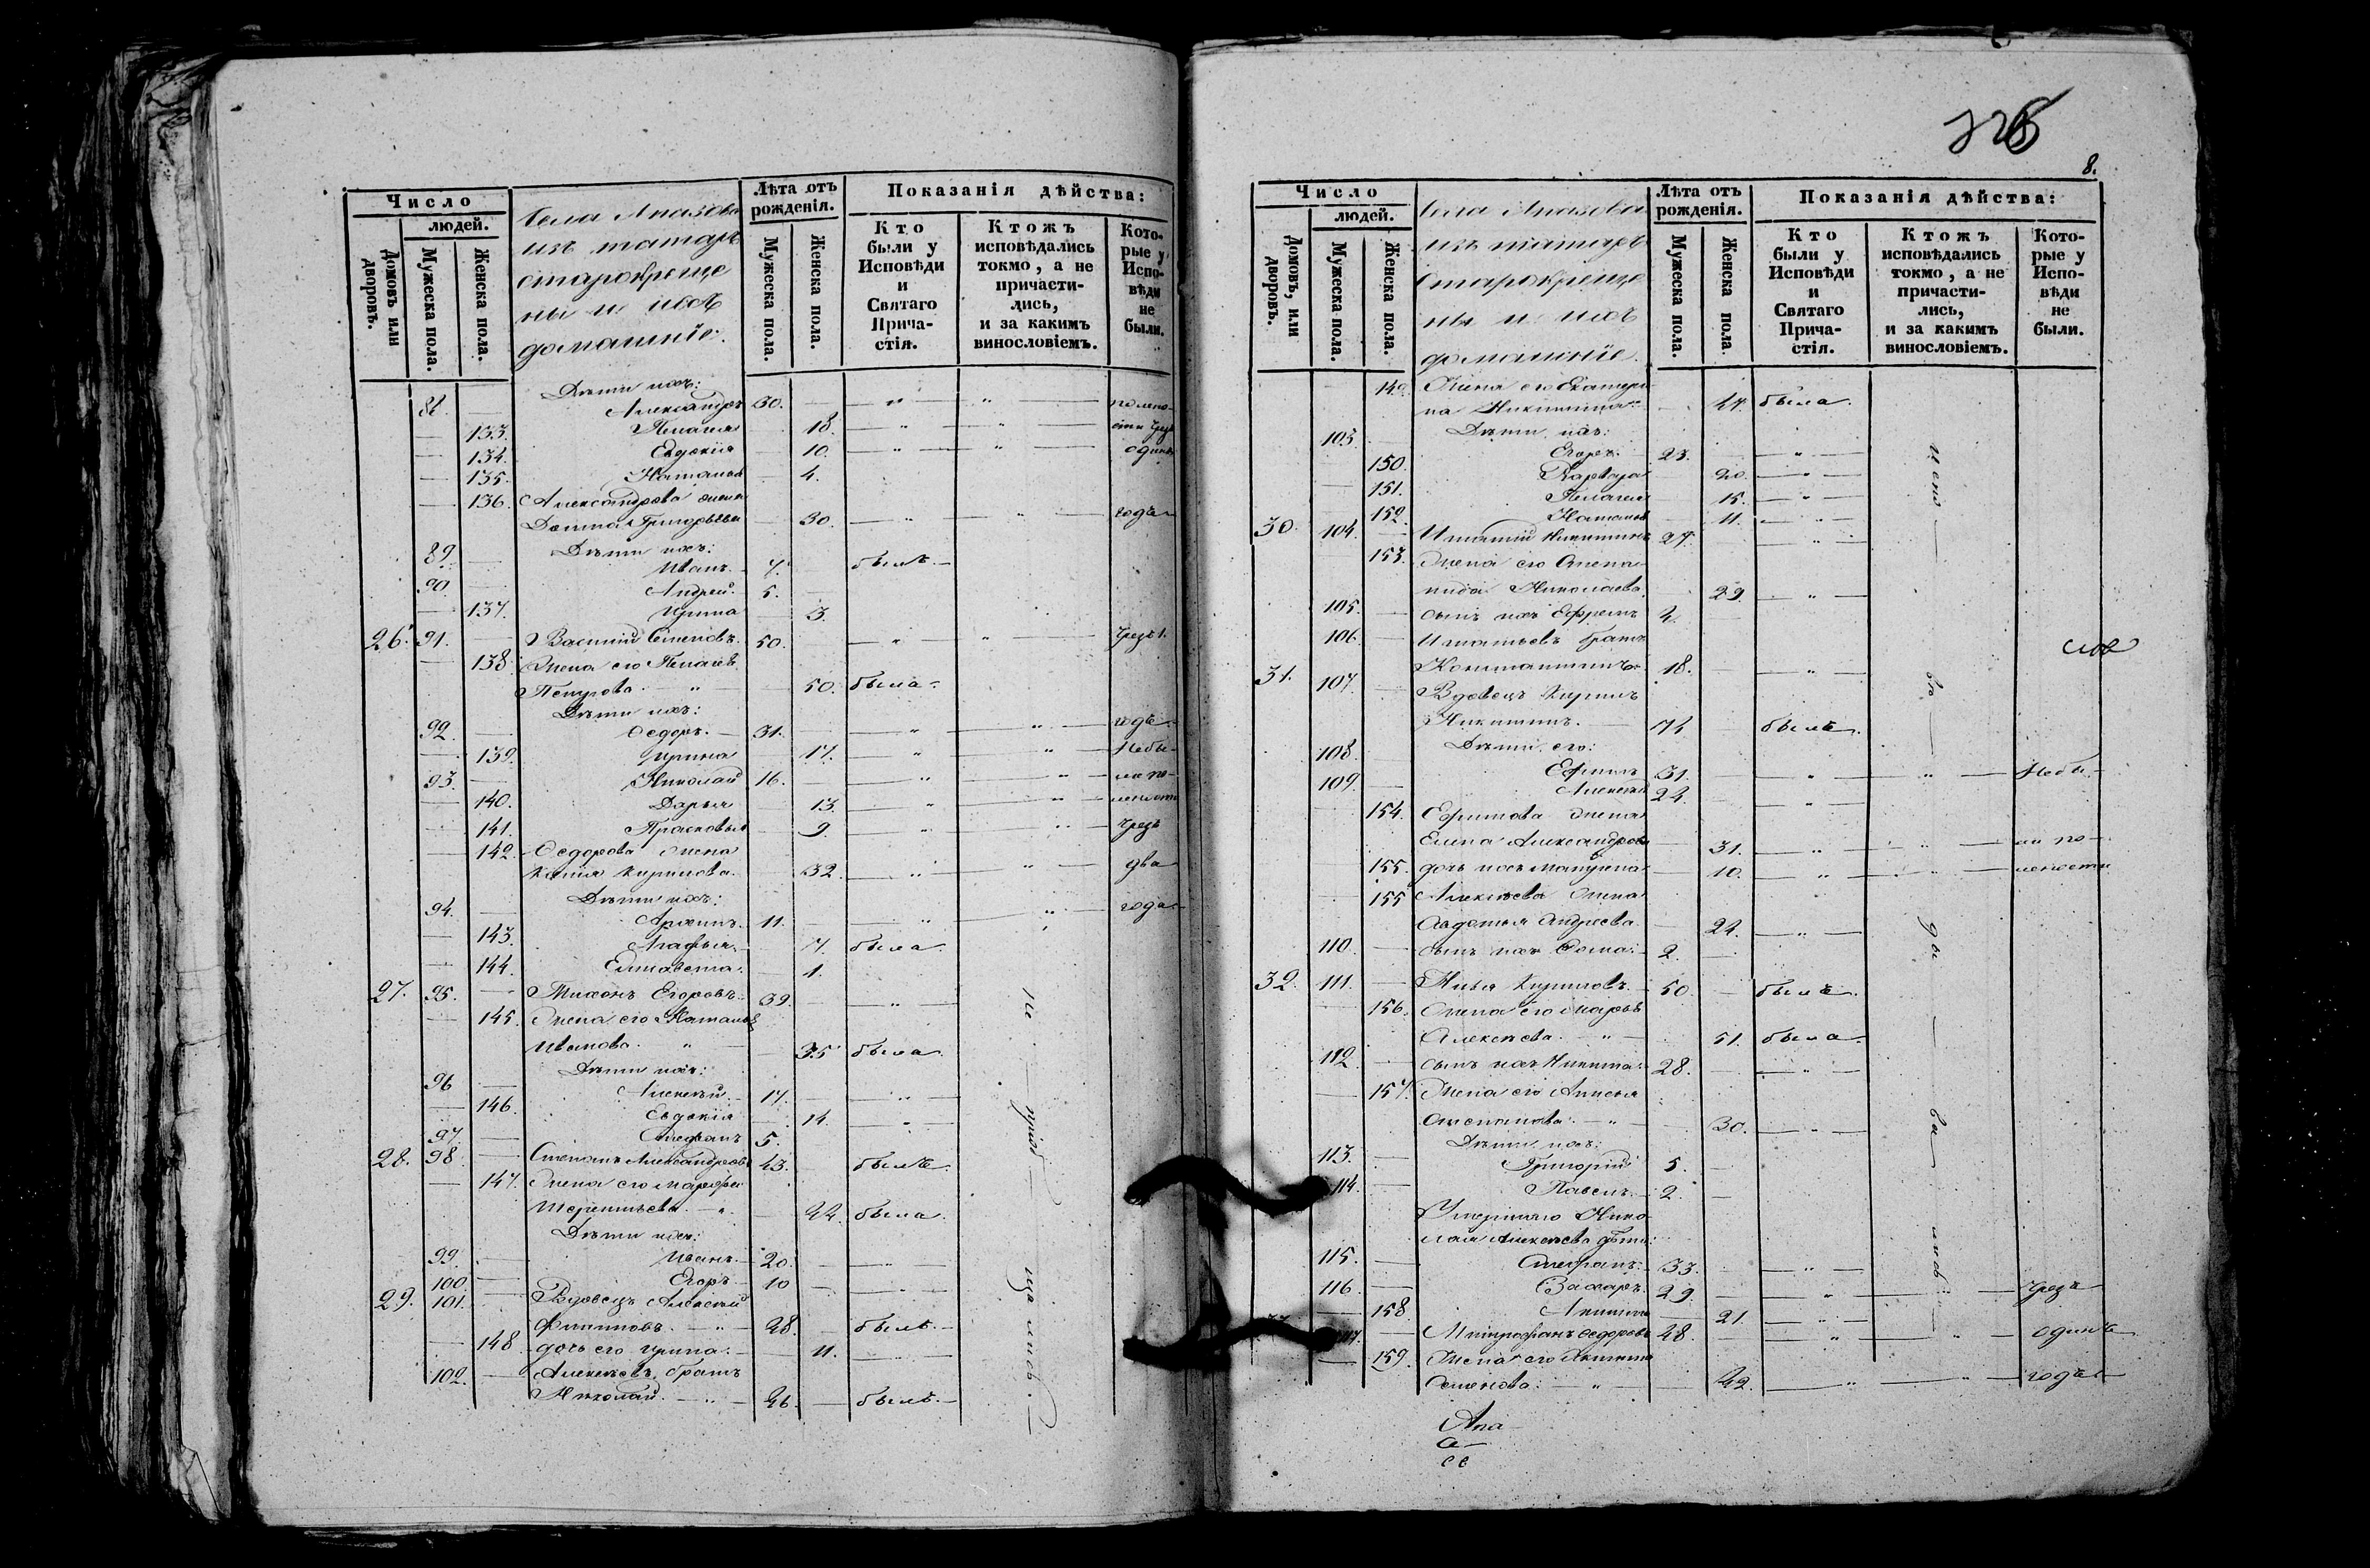 Число
людей.
Домовъ или дворовъ.
Мужеска пола.
Женска пола.
Села Апазова
изъ татаръ
старокреще
ны и ихъ
домашніе.
Лѣта отъ рожденія.
Мужеска пола.
Женска пола.
Показанія дѣйства:
Кто были у Исповѣди и Святаго Прича-стія.
Ктожъ исповѣдались токмо, а не причасти-лись, и за какимъ винословіемъ.
Кото-рые у Испо-вѣди не были.
Дѣти ихъ:
88. Александръ 30. полено-
133. Пелагея 18. сти чрезъ
134. Евдокія 10. одинъ
135. Наталья 4.
136. Александрова жена
Григорьева 30. годъ
Дѣти ихъ:
89. Иванъ. 7. былъ.
90. Андрей. 5.
137. Ирина 3.
26. 91. Василій Семеновъ. 50. чрезъ 1.
138. Жена его Пелагея
Петрова. 50. была.
Дѣти ихъ:
92. Ѳедоръ. 31. годъ
139. Ирина 17. Небы-
93. Николай 16. ли по
140. Дарья 13. леностi
141. Прасковья 9. чрезъ
142. Ѳедорова жена
Кирилова. 32. два
Дѣти ихъ:
94. Архипъ. 11. года
143. Агафья. 7. была
144. Елисавета. 1.
27. 95. Егоровъ. 39.
145. Жена его Наталья
Иванова. 35. была.
Дѣти ихъ:
96 Алексѣй. 17.
146. Евдокія 14.
97. Стефанъ 5.
28. 98. Степанъ Александровъ 43. былъ.
147. Жена его Марфа
Терентьева. 42. была.
Дѣти ихъ:
99. Иванъ. 20.
100. Егоръ. 10
29. 101. Вдовецъ Алексѣй
Филиповъ. 48. былъ.
148. дочь его Ирина. 11.
102. Алексѣевъ братъ
Николай. 46. былъ.
не прі ча ща лись
8.
Число
людей.
Домовъ, или дворовъ.
Мужеска пола.
Женска пола.
Села Апазова
изъ татаръ
старокреще
ны и ихъ
домашніе.
Лѣта отъ рожденія.
Мужеска пола.
Женска пола.
Показанія дѣйства:
Кто были у Исповѣди и Святаго Прича-стія.
Ктожъ исповѣдались токмо, а не причасти-лись, и за какимъ винословіемъ.
Кото-рые у Испо-вѣди не были.
149. Жена его Екатери
на Никитина. 47. была.
Дѣти ихъ:
103. Егоръ. 23.
150. Варвара 20.
151. Пелагея 15.
152. Наталья 11.
30. 104. Игнатій Никитинъ 27.
153. Жена его Степа-
нида Николаева 29.
105. сынъ ихъ Ефремъ 4.
106. Игнатьевъ братъ
Константинъ. 18.
31. 107. Вдовецъ Кирилъ
Никитинъ. 74 былъ.
108. Дѣти его:
Ефимъ 31. Небы-
109. Алексѣй 24.
154. Ефимова жена
Елена Александрова 31. ли по
155. дочь ихъ Матрена 10. леностi
155 Алексѣева жена
Авдотья Андреева 24.
110. сынъ ихъ Ѳома. 2.
32. 111. Илья Кириловъ. 50. былъ.
156. Жена его Марѳа
Алексѣева. 51. была.
112 сынъ ихъ Никита. 28.
157. Жена его
Степанова. 30.
Дѣти ихъ:
113. Григорій 5.
114. Павелъ. 2.
Умершаго Нико
лая Алексѣева дѣти:
115. Стефанъ. 33.
116. Захаръ. 29. чрезъ
158 Акилина 21.
117. Митрофанъ Ѳедоровъ 48. одинъ
159. Жена его
Семенова. 42. годъ
Апа